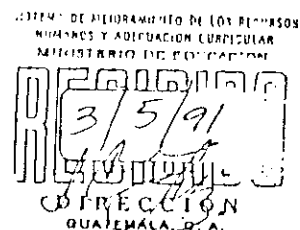 SISTEMA DE MEJORAMIENTO DE LOS RECURSOS
HUMANOS Y ADECUACION CURRICULAR
MINISTERIO DE EDUCACION
3/5/91
DIRECCION
GUATEMALA, C. A.